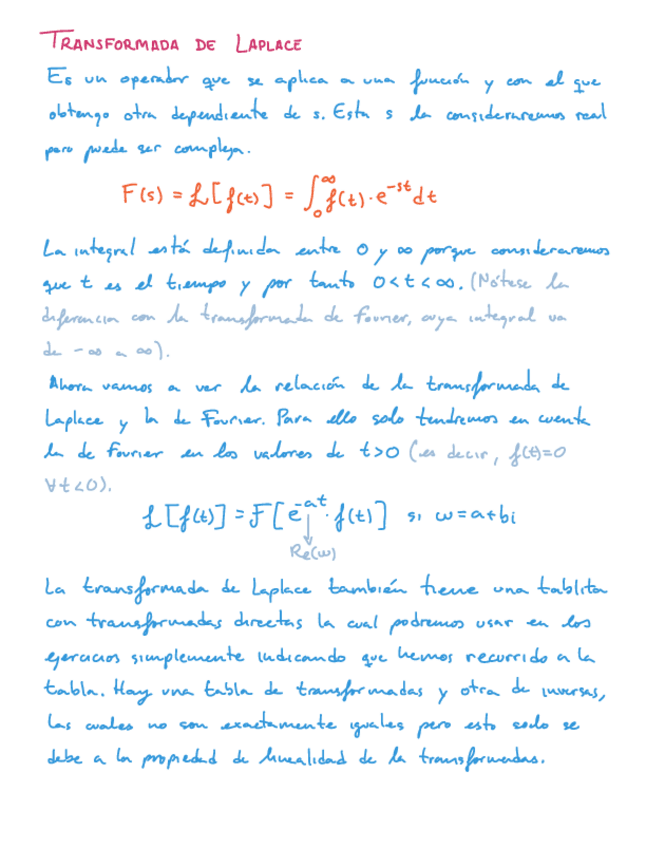 TRANSFORMADA DE LAPLACE
Es un operador que se aplica a una función y con el que
obtengo otra dependiente de s. Esta s la consideraremos real
pero puede ser compleja.
F(s) = ℒ[f(t)] = ∫₀^∞ f(t)·e^{-st} dt
La integral está definida entre 0 y ∞ porque consideraremos
que t es el tiempo y por tanto 0<t<∞. (Nótese la
diferencia con la transformada de Fourier, cuya integral va
de -∞ a ∞).
Ahora vamos a ver la relación de la transformada de
Laplace y la de Fourier. Para ello solo tendremos en cuenta
la de Fourier en los valores de t>0 (es decir, f(t)=0
∀t<0).
ℒ[f(t)] = F[e^{-at}·f(t)] si ω=a+bi
Re(ω)
La transformada de Laplace también tiene una tablita
con transformadas directas la cual podremos usar en los
ejercicios simplemente indicando que hemos recurrido a la
tabla. Hay una tabla de transformadas y otra de inversas,
las cuales no son exactamente iguales pero esto solo se
debe a la propiedad de linealidad de la transformadas.